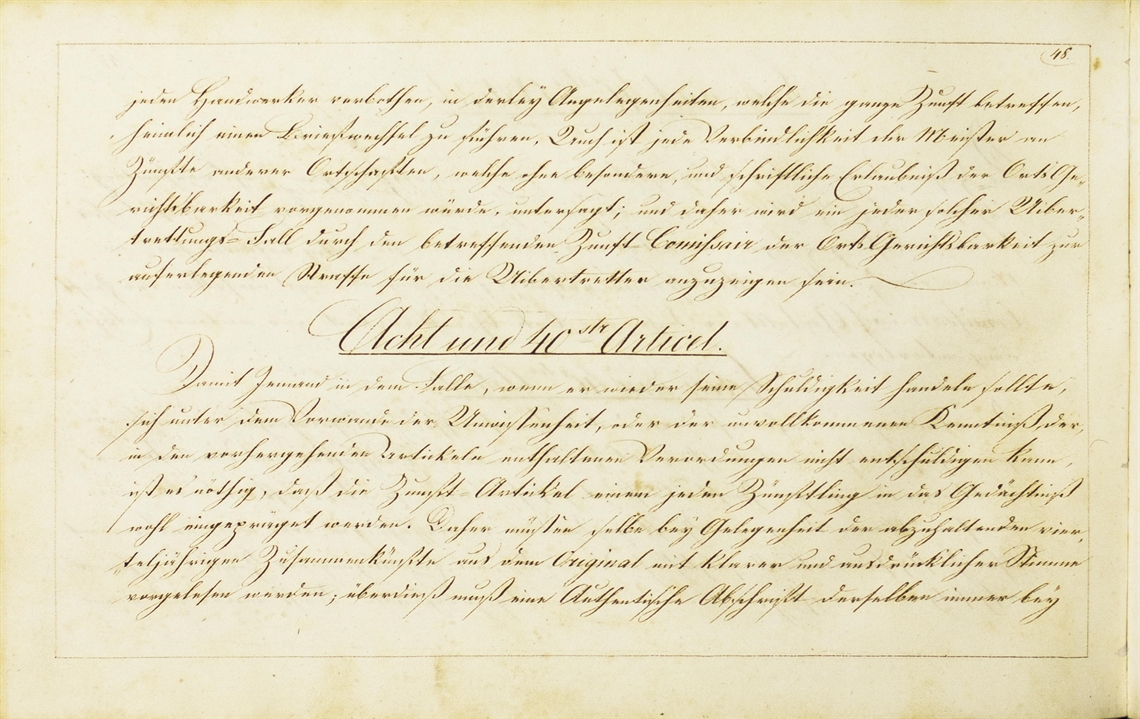 48.
jeden Handwerker verbothen, in derley Angelegenheiten, welche die ganze Zunft betreffen,
heimlich einen Briefwechsel zu führen. Auch ist jede Verbindlichkeit der Meister an
Zünfte anderer Ortschaften, welche ohne besondere, und schriftliche Erlaubniß der Orts Ge-
richtsbarkeit vorgenommen würde, untersagt; und daher wird ein jeder solcher Uiber-
trettungs-Fall durch den betreffenden Zunft Comihsair der Orts Gerichtsbarkeit zur
auferlegenden Straffe für die Uibertretter anzuzeigen sein.
Acht und 40ster Articel.
Damit Jemand in dem Falle, wenn er wieder seine Schuldigkeit handeln sollte,
sich unter dem Vorwande der Unwissenheit, oder der unvollkommenen Kenntniß, der
in den vorhergehenden Artickeln enthaltenen Verordungen nicht entschuldigen kann,
ist es nöthig, daß die Zunft-Artickel einem jeden Zünftling in das Gedächtniß
wohl eingepräget werden. Daher müßen selbe bey Gelegenheit der abzuhaltenden vier-
teljährigen Zusammenkünfte aus dem Original mit klarer und ausdrücklicher Stimme
vorgelesen werden; überdieß muß eine Authentische Abschrift derselben immer bey